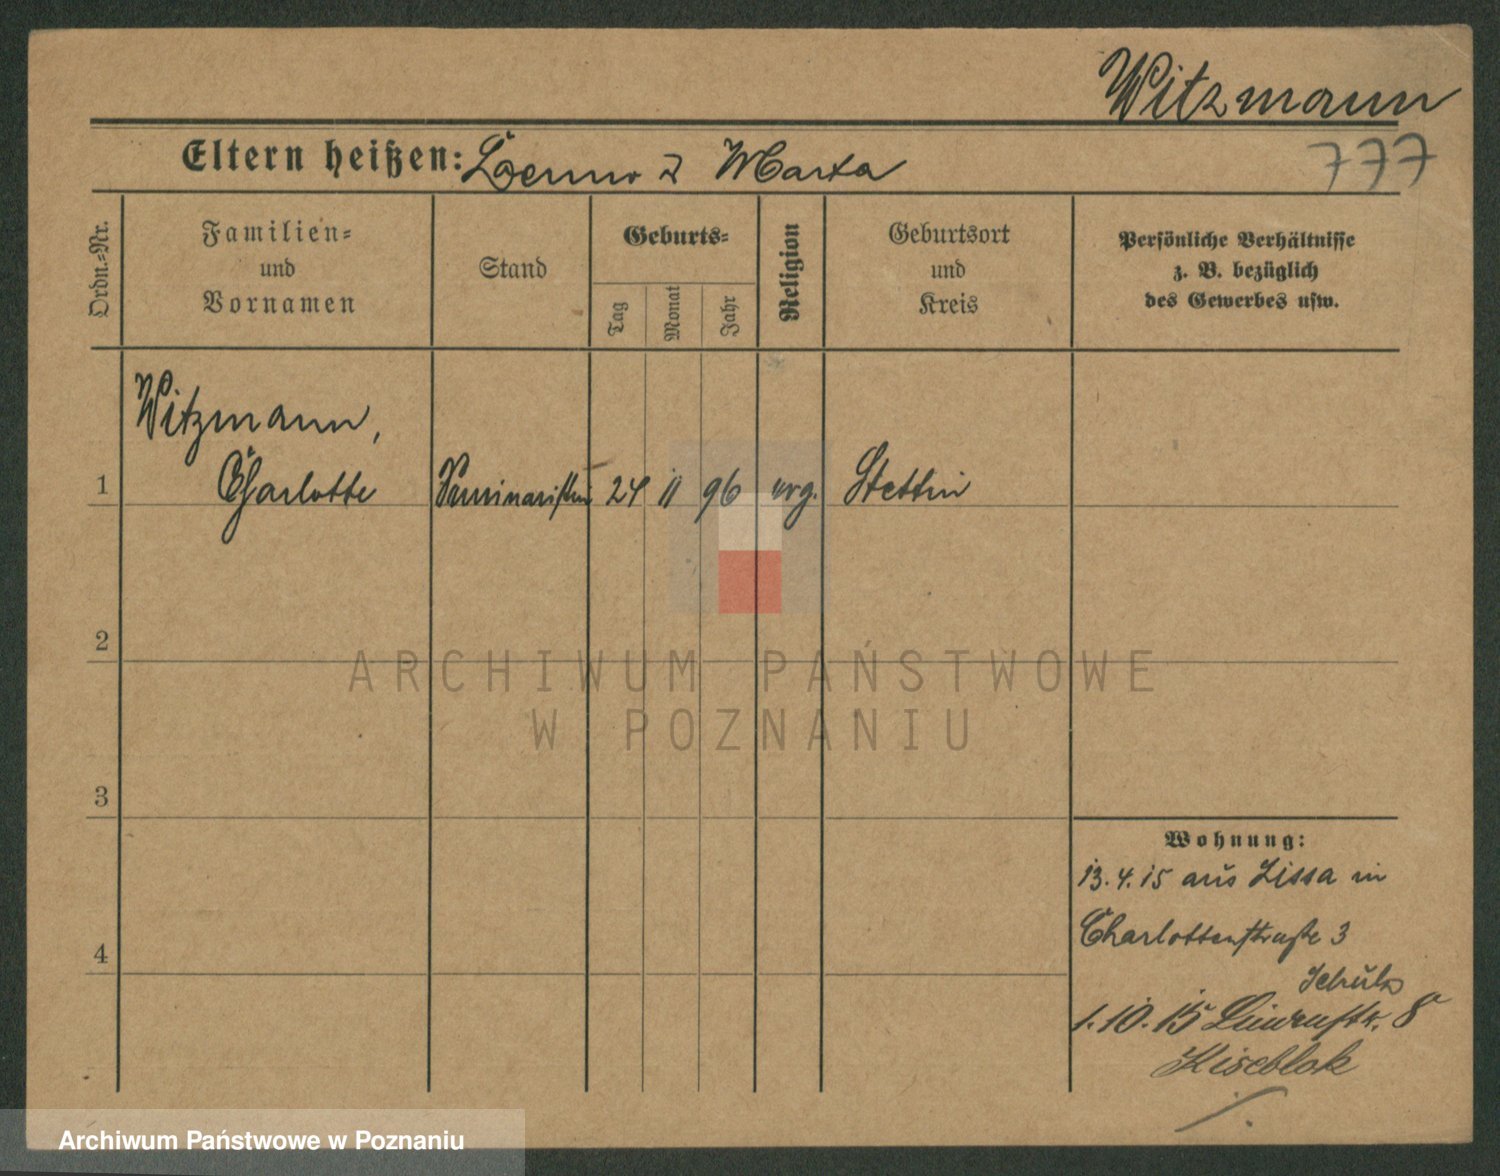 Witzmann
777
Eltern heißen: u Marta
Ordn.-Nr.
Familien-
und
Vornamen
Stand
Geburts-
Tag
Monat
Jahr
Religion
Geburtsort
und
Kreis
Persönliche Verhältnisse
z. B. bezüglich
des Gewerbes usw.
Witzmann,
1 Charlotte Seminaristin 24 11 96 evg. Stettin
2
3
4
Wohnung:
13.4.15 aus Lissa in
Charlottenstraße 3
Schulz
1.10.15 8
ARCHIWUM PAŃSTWOWE
W POZNANIU
Archiwum Państwowe w Poznaniu